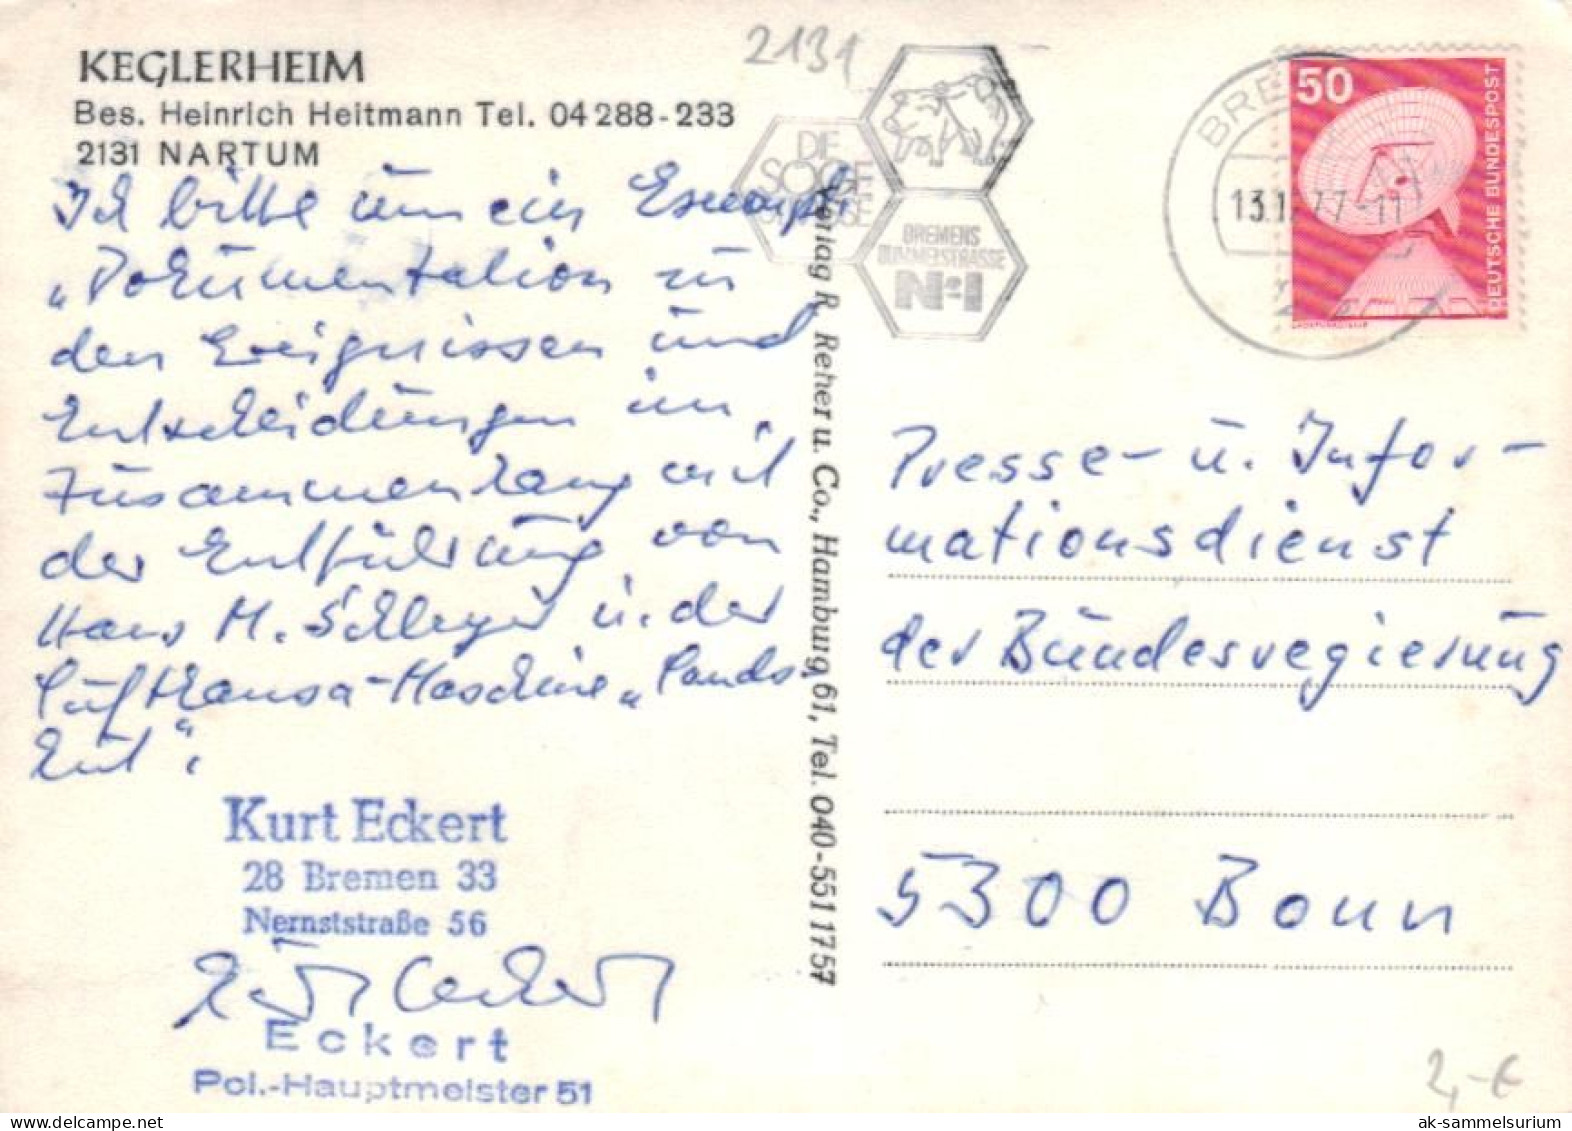 KEGLERHEIM
Bes. Heinrich Heitmann Tel. 04 288-233
2131 NARTUM
Ich bitte um ein Exempl.
„Dokumentation zu
den Ereignissen und
Entscheidungen im
Zusammenhang mit
der Entführung von
Hans M. Schleyer u. der
Lufthansa-Maschine „Lands-
hut“.
Kurt Eckert
28 Bremen 33
Nernststraße 56
Kurt Eckert
Eckert
Pol.-Hauptmeister 51
Verlag R. Reher u. Co., Hamburg 61, Tel. 040-551 1757
2131
DIE
SÖGE
BREMENS
BUMMELSTRASSE
No 1
BRE
77-11
50
DEUTSCHE BUNDESPOST
Presse- u. Infor-
mationsdienst
der Bundesregierung
5300 Bonn
2,-€
ak-sammelsurium.com